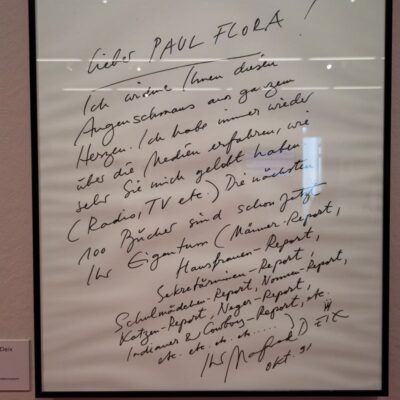 Lieber PAUL FLORA !
Ich widme Ihnen diesen
Augenschmaus aus ganzem
Herzen. Ich habe immer wieder
über die Medien erfahren, wie
sehr Sie mich gelobt haben
(Radio, TV etc.) Die nächsten
100 Bücher sind schon jetzt
Ihr Eigentum (Männer-Report,
Hausfrauen-Report,
Sekretärinnen-Report,
Schulmädchen-Report, Nonnen-Report,
Katzen-Report, Neger-Report,
Indianer & Cowboy-Report, etc.
etc. etc. etc. etc. .....)
Ihr Manfred DEIX
Okt. 91
Deix